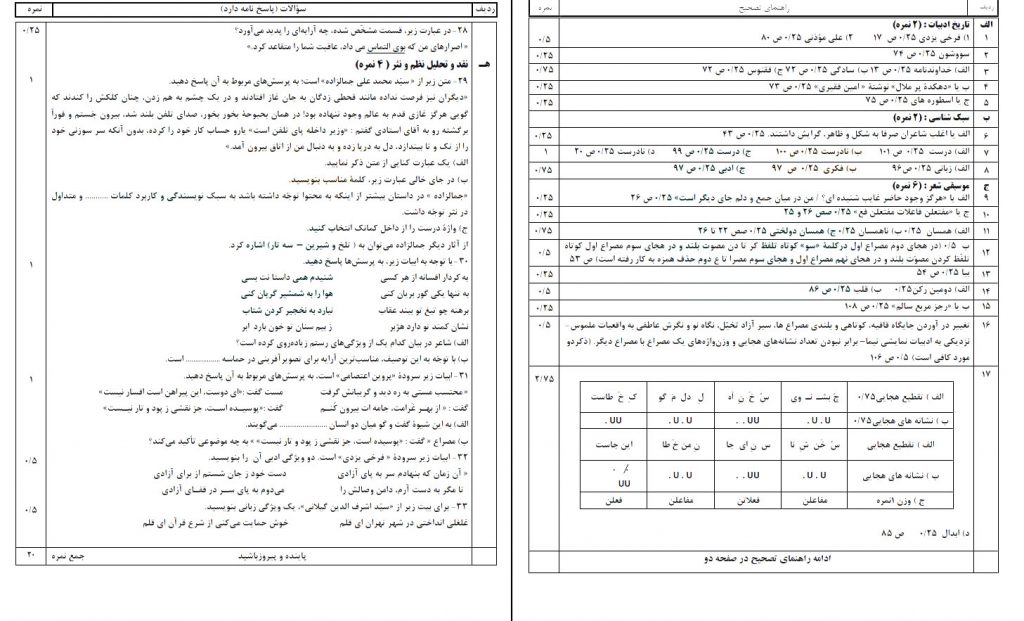 ردیف	راهنمای تصحیح	نمره
الف	تاریخ ادبیات : (۲ نمره)
۱	۱) فرخی یزدی ۰/۲۵ ص ۱۷	۲) علی مؤذنی ۰/۲۵ ص ۸۰	۰/۵
۲	سووشون ۰/۲۵ ص ۷۴	۰/۲۵
۳	الف) خداوندنامه ۰/۲۵ ص ۱۳ ب) سادگی ۰/۲۵ ص ۷۲ ج) ققنوس ۰/۲۵ ص ۷۲	۰/۷۵
۴	ب یا «دهکدهٔ پر ملال» نوشتهٔ « امین فقیری» ۰/۲۵ ص ۷۳	۰/۲۵
۵	ج یا اسطوره های ۰/۲۵ ص ۷۵	۰/۲۵
ب	سبک شناسی : (۲ نمره)
۶	الف یا اغلب شاعران صرفا به شکل و ظاهر، گرایش داشتند. ۰/۲۵ ص ۴۳	۰/۲۵
۷	الف) درست ۰/۲۵ ص ۱۰۱	ب) نادرست ۰/۲۵ ص ۱۰۰	ج) درست ۰/۲۵ ص ۹۹	د) نادرست ۰/۲۵ ص ۲۰	۱
۸	الف) زبانی ۰/۲۵ ص۹۶	ب) فکری ۰/۲۵ ص ۹۷	ج) ادبی ۰/۲۵ ص ۹۷	۰/۷۵
ج	موسیقی شعر : (۶ نمره)
۹	الف یا «هرگز وجود حاضر غایب شنیده ای؟ / من در میان جمع و دلم جای دیگر است» ۰/۲۵ ص ۲۶	۰/۲۵
۱۰	ج یا «مفتعلن فاعلات مفتعلن فع» ۰/۲۵ صص ۲۶ و ۲۵	۰/۲۵
۱۱	الف) همسان ۰/۲۵ ب) ناهمسان ۰/۲۵ ج) همسان دولختی ۰/۲۵ صص ۲۲ تا ۲۶	۰/۷۵
۱۲	ب ۰/۵ (در هجای دوم مصراع اول درکلمهٔ «سو» کوتاه تلفظ کر تا دن مصوت بلند و در هجای سوم مصراع اول کوتاه	۰/۵
تلفّظ کردن مصوّت بلند و در هجای نهم مصراع اول و هجای سوم مصرا تا ع دوم حذف همزه به کار رفته است) ص ۵۳
۱۳	بیا ۰/۲۵ ص ۵۴	۰/۲۵
۱۴	الف) دومین رکن۰/۲۵	ب) قلب ۰/۲۵ ص ۸۶	۰/۵
۱۵	ب یا «رجز مربع سالم» ۰/۲۵ ص ۱۰۸	۰/۲۵
۱۶	تغییر در آوردن جایگاه قافیه، کوتاهی و بلندی مصراع ها، سیر آزاد تخیّل، نگاه نو و نگرش عاطفی به واقعیات ملموس-	۰/۵
نزدیکی به ادبیات نمایشی نیما- برابر نبودن تعداد نشانه‌های هجایی و وزن‌واژه‌های یک مصراع با مصراع دیگر. (ذکردو
مورد کافی است) ۰/۵ ص ۱۰۶
۱۷	۲/۷۵
الف ) تقطیع هجایی۰/۷۵	چ بشـ نـ وی	سُ خَ نِ اه	لِ دل مَ گو	ک خَ طاست
ب ) نشانه های هجایی۰/۷۵	U . U .	UU . .	U . U .	UU .
الف ) تقطیع هجایی	سُ خَن شِ نا	س نِ ای جا	نِ من خَ طا	این جاست
ب ) نشانه های هجایی	U . U .	UU . .	U . U .	UU
ج ) وزن ۱نمره	مفاعلن	فعلاتن	مفاعلن	فعلن
د) ابدال ۰/۲۵ ص ۸۵
ادامه راهنمای تصحیح در صفحه دو
ردیف	سؤالات (پاسخ نامه دارد)	نمره
۲۸- در عبارت زیر، قسمت مشخّص شده، چه آرایه‌ای را پدید می‌آورد؟	۰/۲۵
« اصرارهای من که بوی التماس می داد، عاقبت شما را متقاعد کرد.»
هـ	نقد و تحلیل نظم و نثر ( ۴ نمره)
۲۹- متن زیر از «سیّد محمد علی جمالزاده» است؛ به پرسش‌های مربوط به آن پاسخ دهید.	۱
«دیگران نیز فرصت نداده مانند قحطی زدگان به جان غاز افتادند و در یک چشم به هم زدن، چنان کلکش را کندند که
گویی هرگز غازی قدم به عالم وجود ننهاده بود! در همان بحبوحهٔ بخور بخور، صدای تلفن بلند شد، بیرون جستم و فوراً
برگشته رو به آقای استادی گفتم : «وزیر داخله پای تلفن است» یارو حساب کار خود را کرده، بدون آنکه سر سوزنی خود
را از تک و تا بیندازد، دل به دریا زده و به دنبال من از اتاق بیرون آمد.»
الف) یک عبارت کنایی از متن ذکر نمایید.
ب) در جای خالی عبارت زیر، کلمهٔ مناسب بنویسید.
«جمالزاده » در داستان بیشتر از اینکه به محتوا توجه داشته باشد به سبک نویسندگی و کاربرد کلمات .......... و متداول
در نثر توجه داشت.
ج) واژهٔ درست را از داخل کمانک انتخاب کنید.
از آثار دیگر جمالزاده می‌توان به ( تلخ و شیرین – سه تار) اشاره کرد.
۳۰- با توجه به ابیات زیر، به پرسش‌ها پاسخ دهید.	۱
به کردار افسانه از هر کسی	شنیدم همی داستانت بسی
به تنها یکی گور بریان کنی	هوا را به شمشیر گریان کنی
برهنه چو تیغ تو بیند عقاب	نیارد به نخجیر کردن شتاب
نشان کمند تو دارد هژبر	ز بیم سنان تو خون بارد ابر
الف) شاعر در بیان کدام یک از ویژگی‌های رستم زیاده‌روی کرده است؟
ب) با توجه به این توصیف، مناسب‌ترین آرایه برای تصویرآفرینی در حماسه ................ است.
۳۱- ابیات زیر سرودهٔ «پروین اعتصامی» است. به پرسش‌های مربوط به آن پاسخ دهید.	۱
«محتسب مستی به ره دید و گریبانش گرفت	مست گفت :«ای دوست، این پیراهن است افسار نیست»
گفت : « از بهـر غرامت، جامه ات بیرون کُنـم	گفت: «پوسیـده است، جز نقشی ز پود و تار نیـست»
الف) به این شیوهٔ گفت و گو میان دو انسان ...................... می‌گویند.
ب) مصراع « گفت : «پوسیده است، جز نقشی ز پود و تار نیست» » به چه موضوعی تأکید می‌کند؟
۳۲- ابیات زیر سرودهٔ « فرخی یزدی» است. دو ویژگی ادبی آن را بنویسید.	۰/۵
« آن زمان که بنهادم سر به پای آزادی	دست خود ز جان شستم از برای آزادی
تا مگر به دست آرم، دامن وصالش را	می‌دوم به پای ســر در قفـای آزادی
۳۳- برای بیت زیر از «سیّد اشرف الدین گیلانی»، یک ویژگی زبانی بنویسید.	۰/۵
غلغلی انداختی در شهر تهران ای قلم	خوش حمایت می‌کنی از شرع قرآن ای قلم
پاینده و پیروزباشید	جمع نمره	۲۰